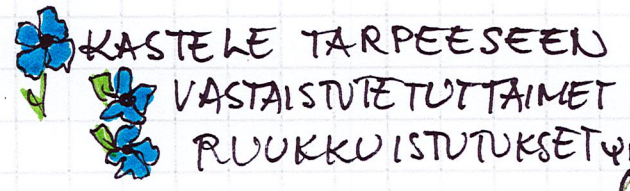 KASTELE TARPEESEEN
VASTAISTUTETUT TAIMET
RUUKKUISTUTUKSET